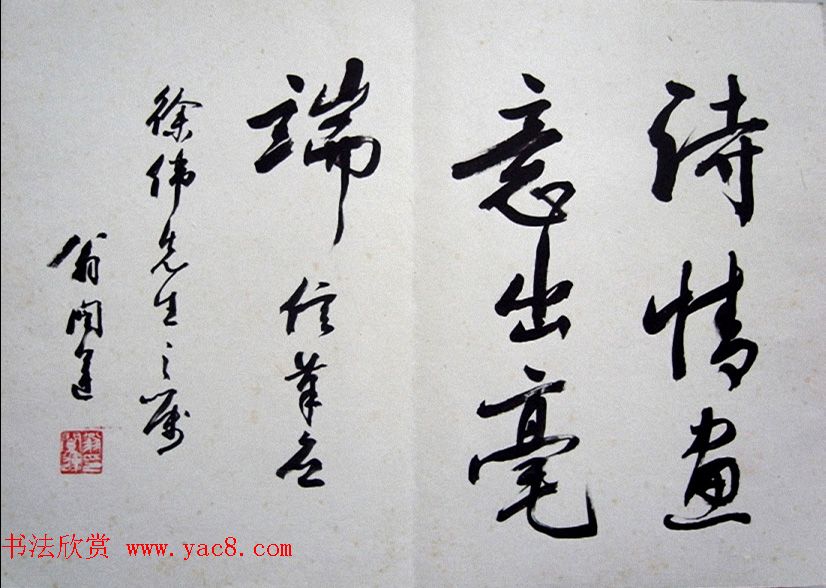 诗情畫
意出毫
端 信筆应
徐伟先生之嘱
翁闿運
书法欣赏 www.yac8.com